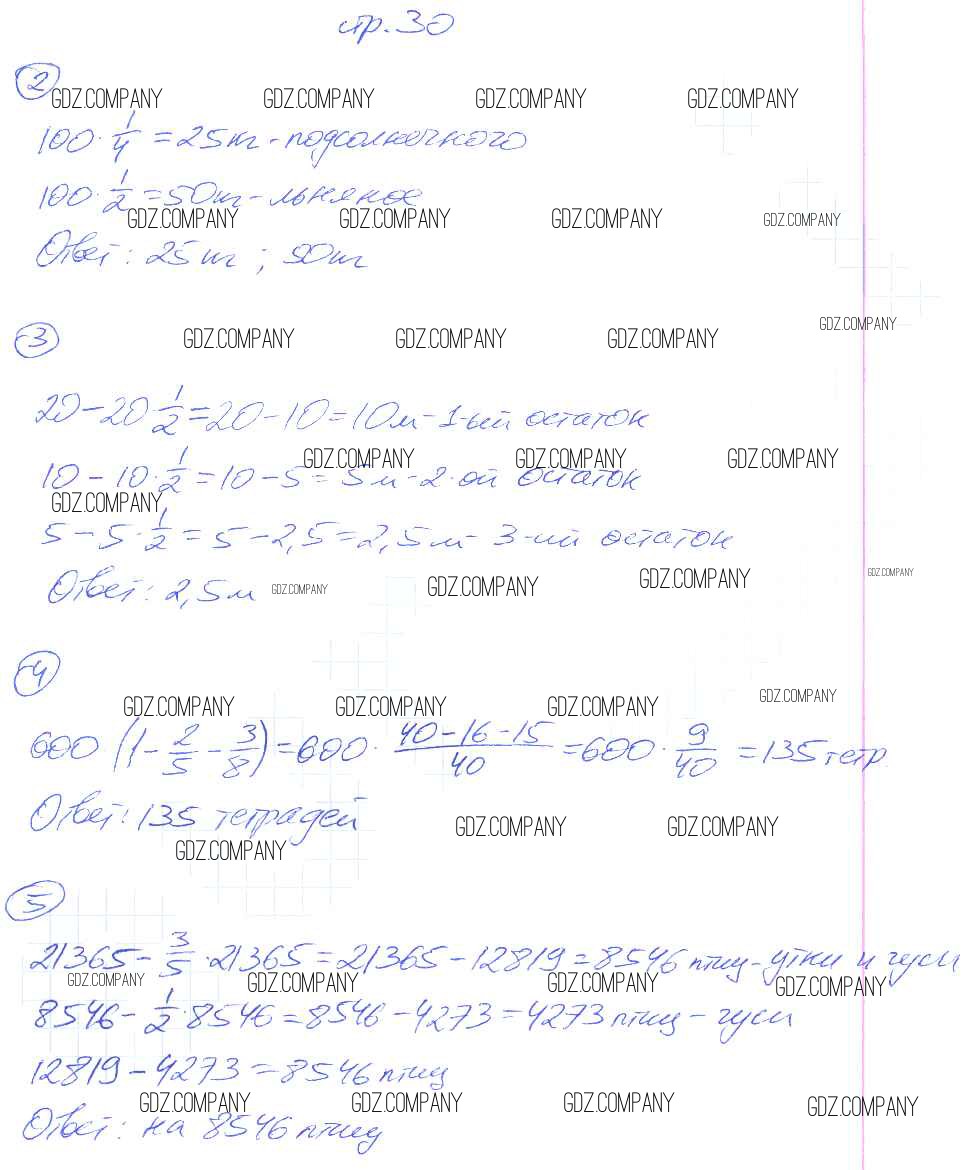 стр. 30
2
GDZ.COMPANY GDZ.COMPANY GDZ.COMPANY GDZ.COMPANY
100 · 1/4 = 25 т - подсолнечного
100 · 1/2 = 50 т - льняное
GDZ.COMPANY GDZ.COMPANY GDZ.COMPANY GDZ.COMPANY
Ответ: 25 т ; 50 т
GDZ.COMPANY
3 GDZ.COMPANY GDZ.COMPANY GDZ.COMPANY
20 - 20 · 1/2 = 20 - 10 = 10 м - 1-ый остаток
GDZ.COMPANY GDZ.COMPANY GDZ.COMPANY
10 - 10 · 1/2 = 10 - 5 = 5 м - 2-ой остаток
GDZ.COMPANY
5 - 5 · 1/2 = 5 - 2,5 = 2,5 м - 3-ий остаток
GDZ.COMPANY GDZ.COMPANY GDZ.COMPANY GDZ.COMPANY
Ответ: 2,5 м
4
GDZ.COMPANY GDZ.COMPANY GDZ.COMPANY GDZ.COMPANY
600 (1 - 2/5 - 3/8) = 600 · (40 - 16 - 15)/40 = 600 · 9/40 = 135 тетр.
Ответ: 135 тетрадей
GDZ.COMPANY GDZ.COMPANY
GDZ.COMPANY
5
21365 - 3/5 · 21365 = 21365 - 12819 = 8546 птиц - утки и гуси
GDZ.COMPANY GDZ.COMPANY GDZ.COMPANY GDZ.COMPANY
8546 - 1/2 · 8546 = 8546 - 4273 = 4273 птиц - гуси
12819 - 4273 = 8546 птиц
GDZ.COMPANY GDZ.COMPANY GDZ.COMPANY GDZ.COMPANY
Ответ: на 8546 птиц